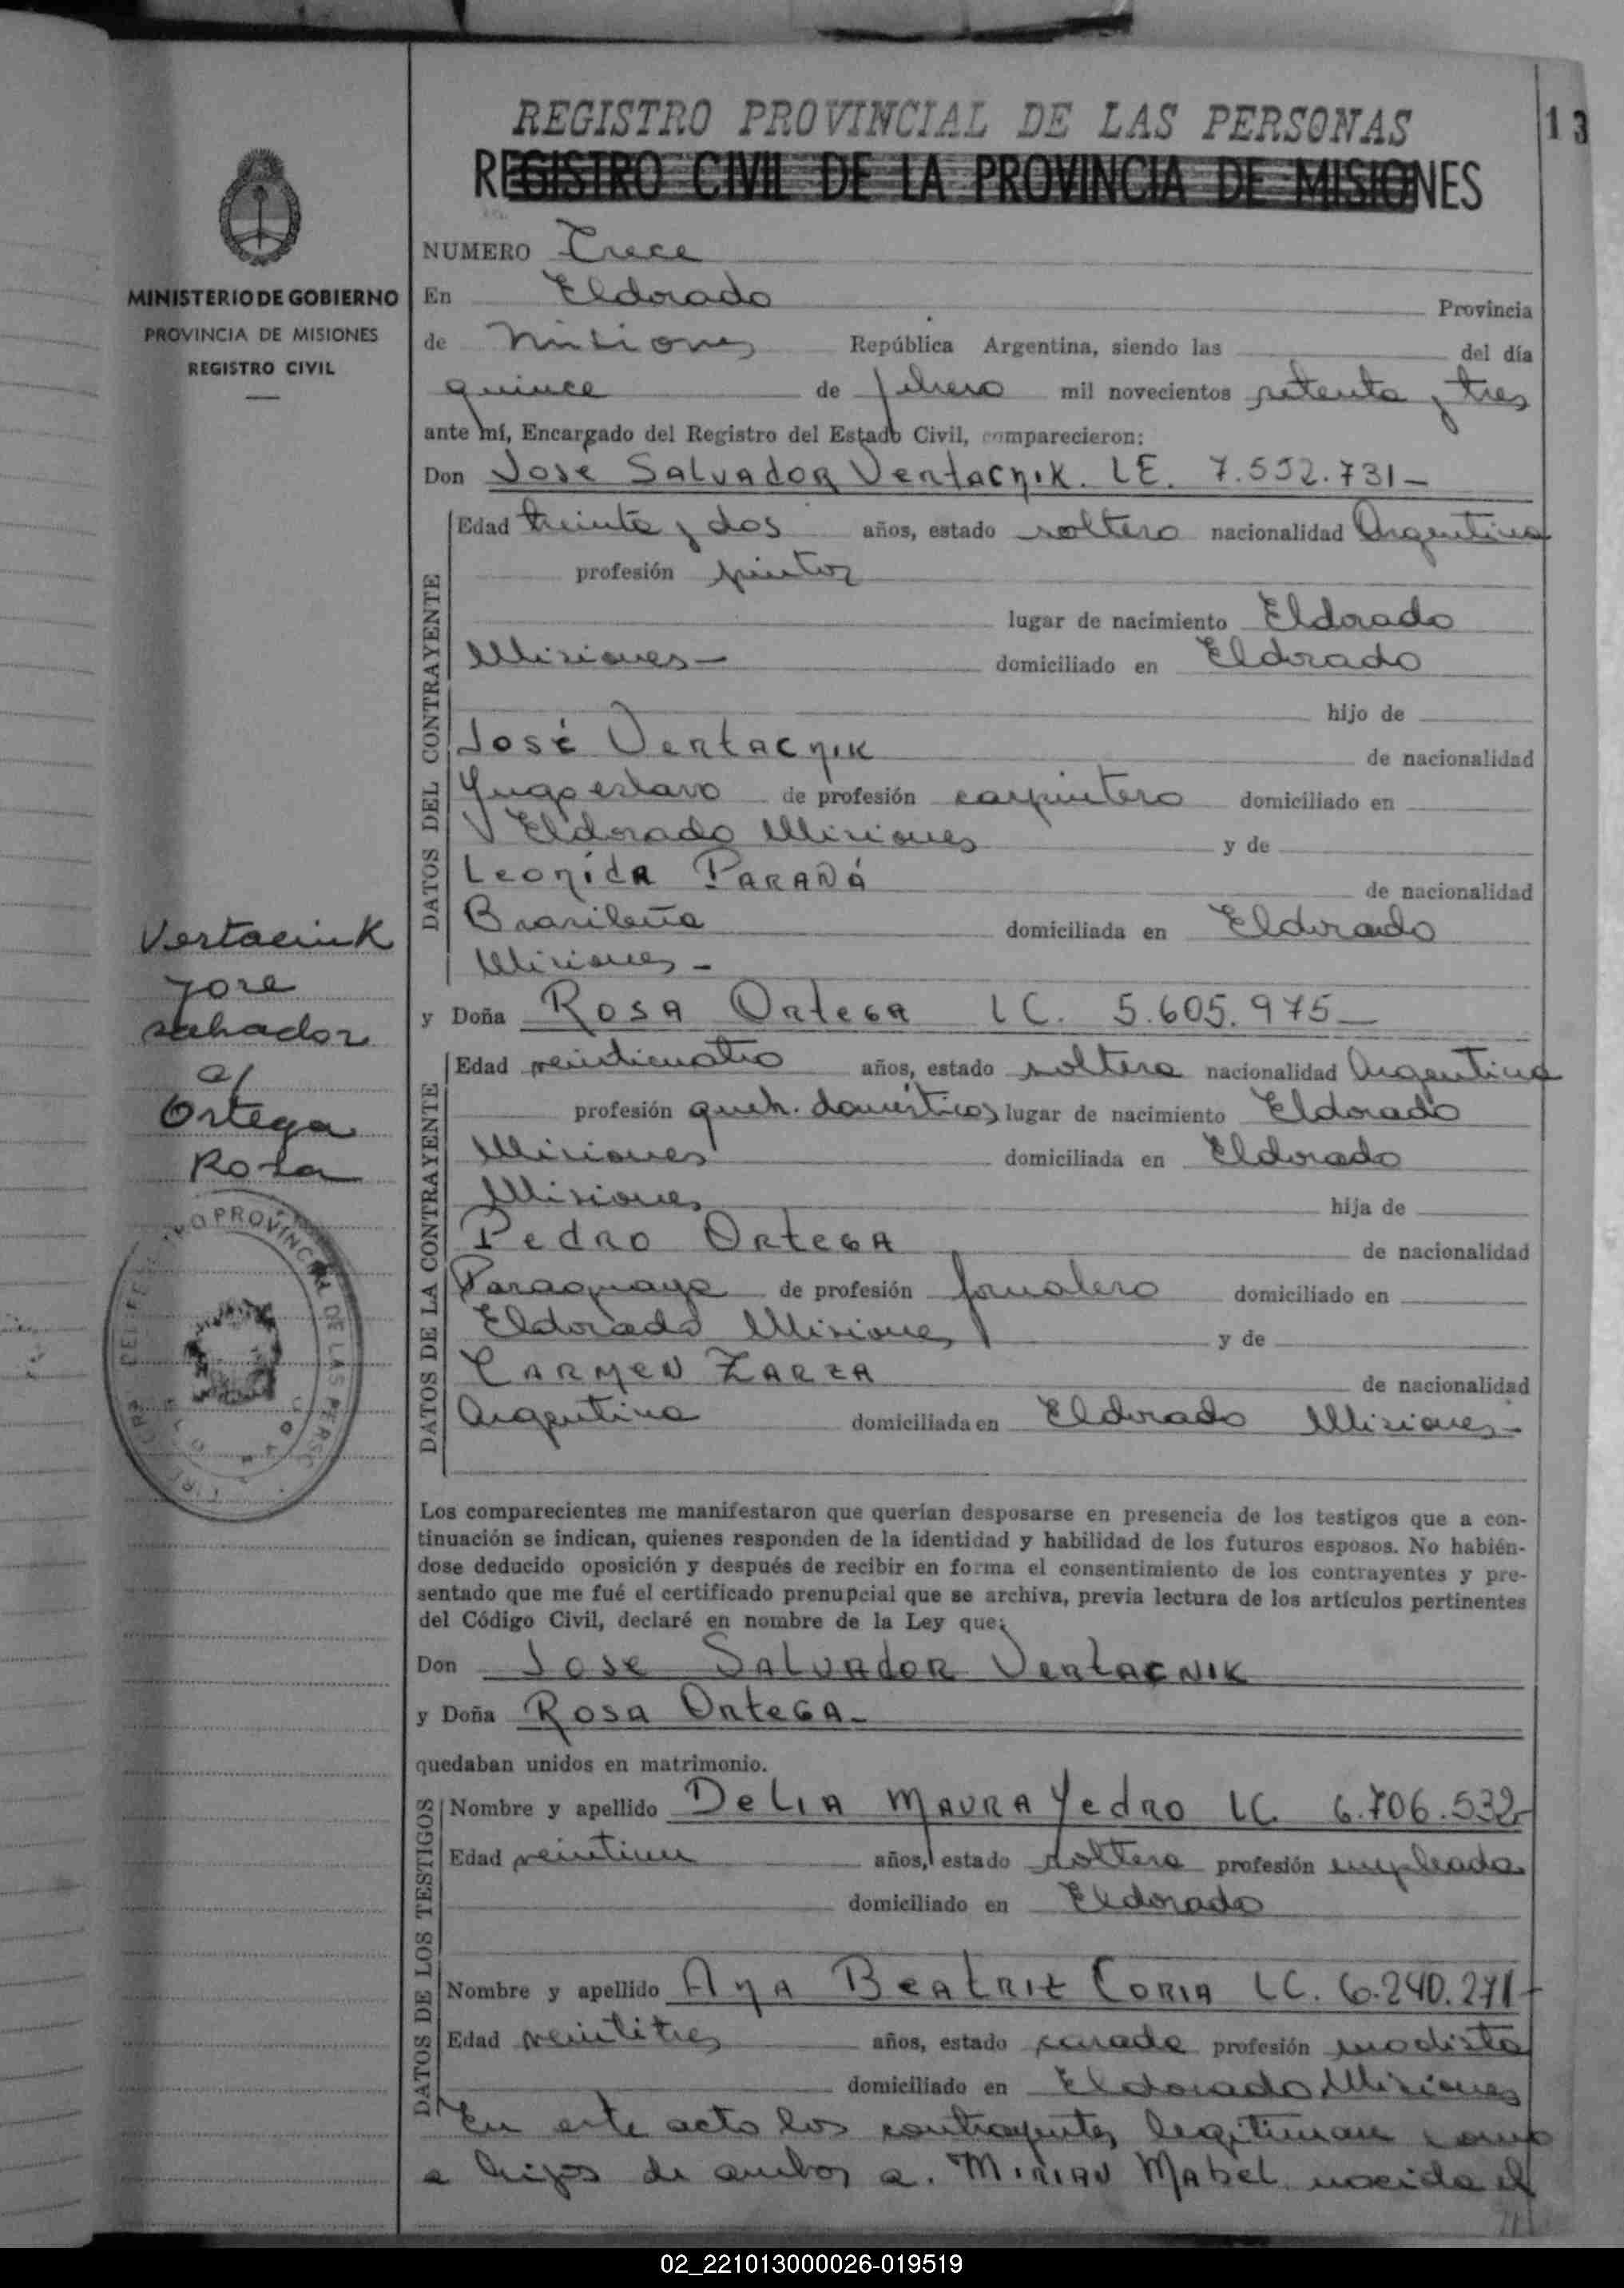 13
REGISTRO PROVINCIAL DE LAS PERSONAS
REGISTRO CIVIL DE LA PROVINCIA DE MISIONES
MINISTERIO DE GOBIERNO
PROVINCIA DE MISIONES
REGISTRO CIVIL
NUMERO Trece
En Eldorado Provincia
de Misiones República Argentina, siendo las del día
quince de febrero mil novecientos setenta y tres
ante mí, Encargado del Registro del Estado Civil, comparecieron:
Don Jose Salvador Vertacnik. LE. 7.552.731-
DATOS DEL CONTRAYENTE
Edad treinta y dos años, estado soltero nacionalidad Argentina
profesión pintor
lugar de nacimiento Eldorado
Misiones- domiciliado en Eldorado
hijo de
José Vertacnik de nacionalidad
Yugoeslavo de profesión carpintero domiciliado en
Eldorado Misiones y de
Leonida Paraná de nacionalidad
Brasileña domiciliada en Eldorado
Misiones-
Vertacnik
Jose
Salvador
c/
Ortega
Rosa
y Doña Rosa Ortega LC. 5.605.975-
DATOS DE LA CONTRAYENTE
Edad veinticuatro años, estado soltera nacionalidad Argentina
profesión queh. domésticos lugar de nacimiento Eldorado
Misiones domiciliada en Eldorado
Misiones hija de
Pedro Ortega de nacionalidad
Paraguaya de profesión jornalero domiciliado en
Eldorado Misiones y de
Carmen Zarza de nacionalidad
Argentina domiciliada en Eldorado Misiones-
PROVINCIAL DE LAS PERS
Los comparecientes me manifestaron que querían desposarse en presencia de los testigos que a con-
tinuación se indican, quienes responden de la identidad y habilidad de los futuros esposos. No habién-
dose deducido oposición y después de recibir en forma el consentimiento de los contrayentes y pre-
sentado que me fué el certificado prenupcial que se archiva, previa lectura de los artículos pertinentes
del Código Civil, declaré en nombre de la Ley que:
Don Jose Salvador Vertacnik
y Doña Rosa Ortega-
quedaban unidos en matrimonio.
DATOS DE LOS TESTIGOS
Nombre y apellido Delia Maura Yedro LC. 6.706.532-
Edad veintiun años, estado soltera profesión empleada
domiciliado en Eldorado
Nombre y apellido Ana Beatriz Coria LC. 6.240.271-
Edad veintitres años, estado casada profesión modista
domiciliado en Eldorado Misiones
En este acto los contrayentes legitiman como
a hijos de ambos a. Mirian Mabel nacida el
02_221013000026-019519